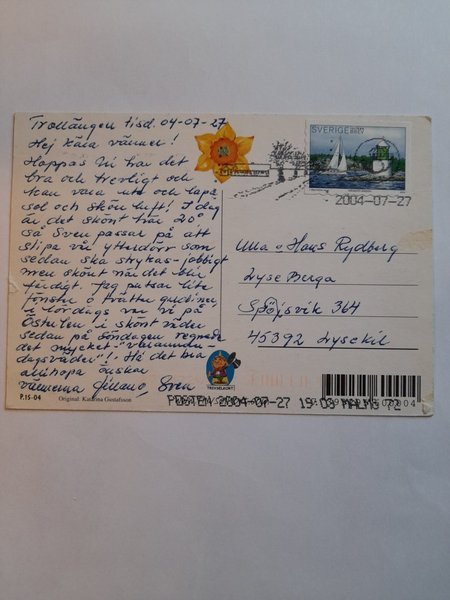 Trollängen tisd. 04-07-27
Hej kära vänner!
Hoppas Ni har det
bra och trevligt och
kan vara ute och lapa
sol och skön luft! I dag
är det skönt här 20°
så Sven passar på att
slipa vår ytterdörr som
sedan ska strykas-jobbigt
men skönt när det blir
färdigt. Jag putsar lite
fönster o tvättar gardiner
i lördags var vi på
i skönt väder
sedan på söndagen regnade
det mycket
dagsväder"! Ha det bra
allihopa önskar
vännerna Sven
P.15-04 Original: Katarina Gustafsson
SVERIGE BREV
2004-07-27
Ulla o Hans Rydberg
Lyse Berga
Spöjsvik 364
45392 Lysekil
TROSSELKORT
POSTEN 2004-07-27 19:03 MALMÖ 72